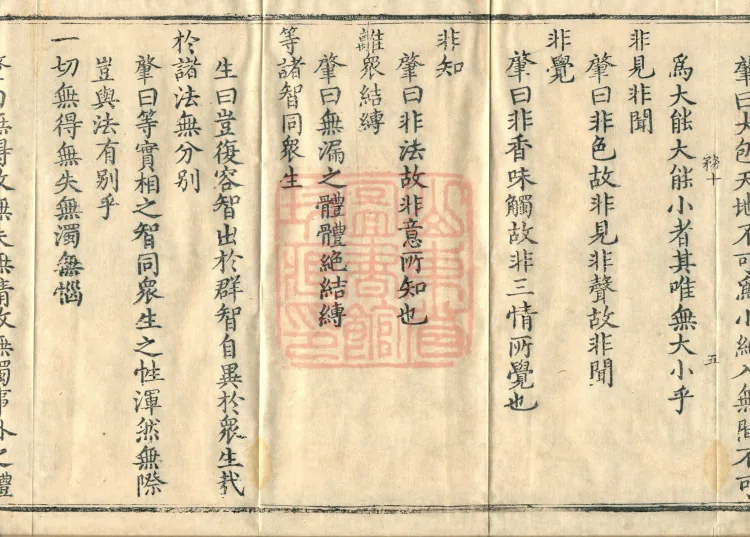 肇曰大包天地不可爲小細入無間不可
務十
五
爲大能大能小者其唯無大小乎
非見非聞
肇曰非色故非見非聲故非聞
非覺
肇曰非香味觸故非三情所覺也
非知
肇曰非法故非意所知也
離眾結縛
肇曰無漏之體體絕結縛
等諸智同眾生
生曰豈復容智出於群智自異於眾生哉
於諸法無分別
肇曰等實相之智同眾生之性渾然無際
豈與法有別乎
一切無得無失無濁無惱
肇曰無得故無失無清故無濁事外之體
山東省
圖書館
珍藏印